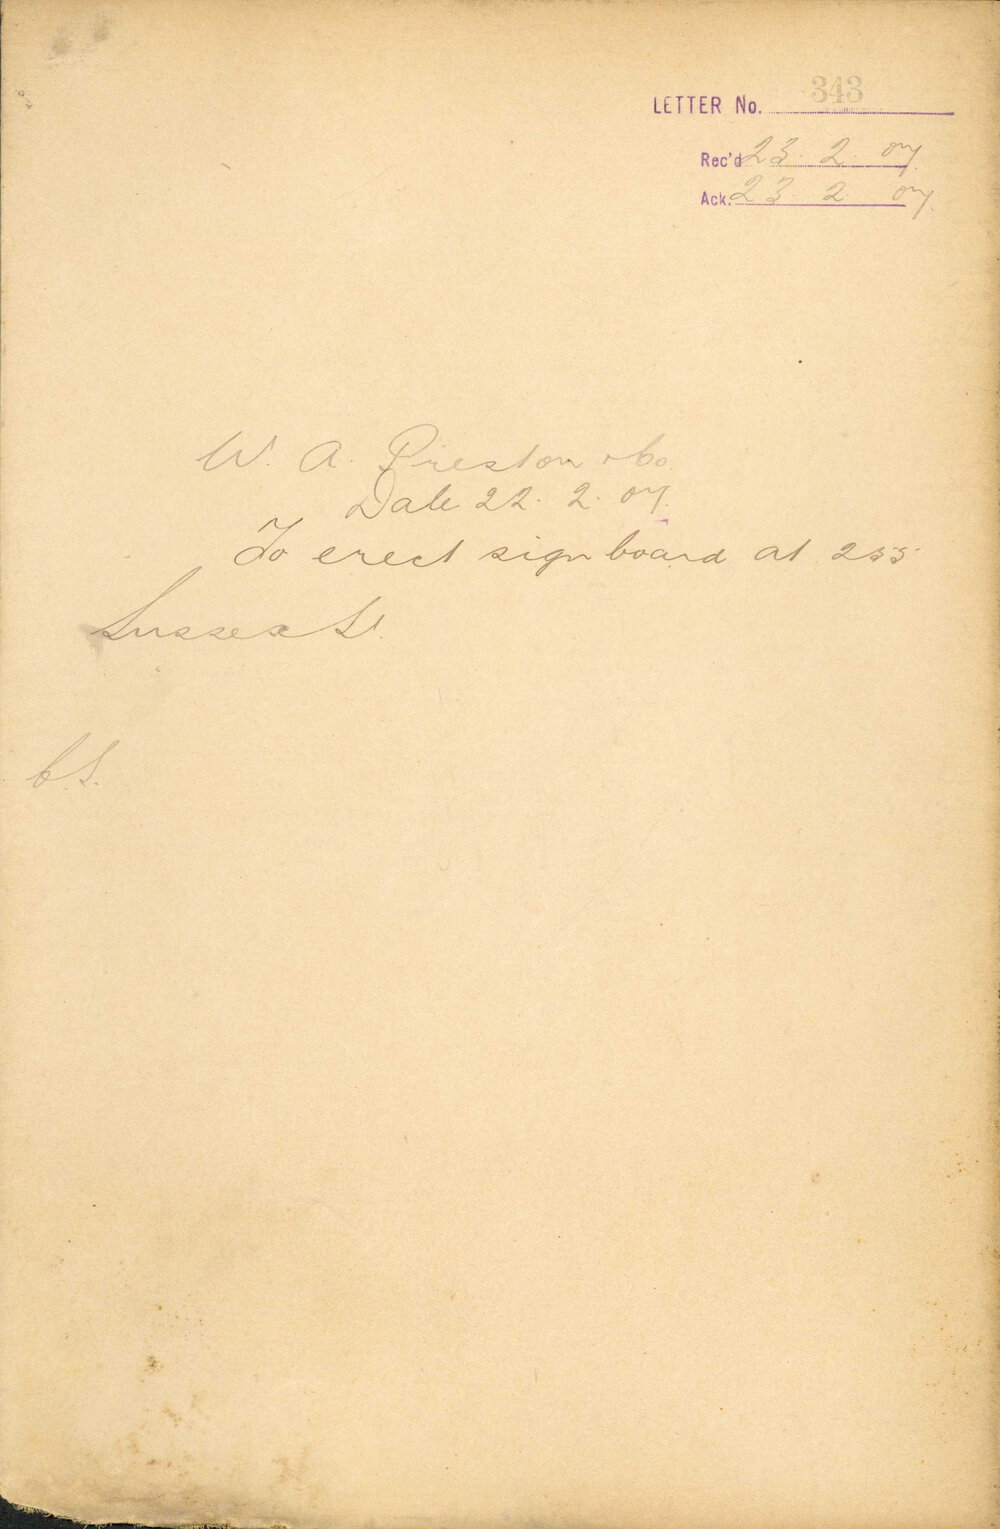 LETTER No. 343
Rec'd 23. 2. 07.
Ack. 23. 2. 07.
W. A. Preston & Co.
Date 22. 2. 07.
To erect sign board at 255
Sussex St.
C.S.